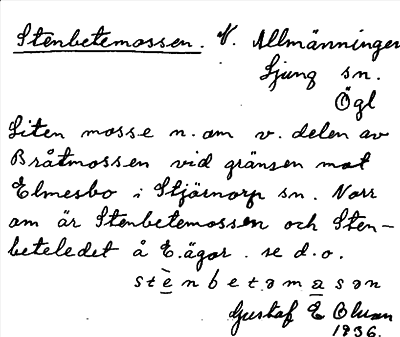 Stenbetemossen. N. Allmänningen
Ljung sn.
Ögl
Liten mosse n. om v. delen av
Bråtmossen vid gränsen mot
Elmesbo i Stjärnorp sn. Norr
om är Stenbetemossen och Sten-
beteledet å E. ägor. se d.o.
stènbetəmasən
Gustaf E Olson
1936.